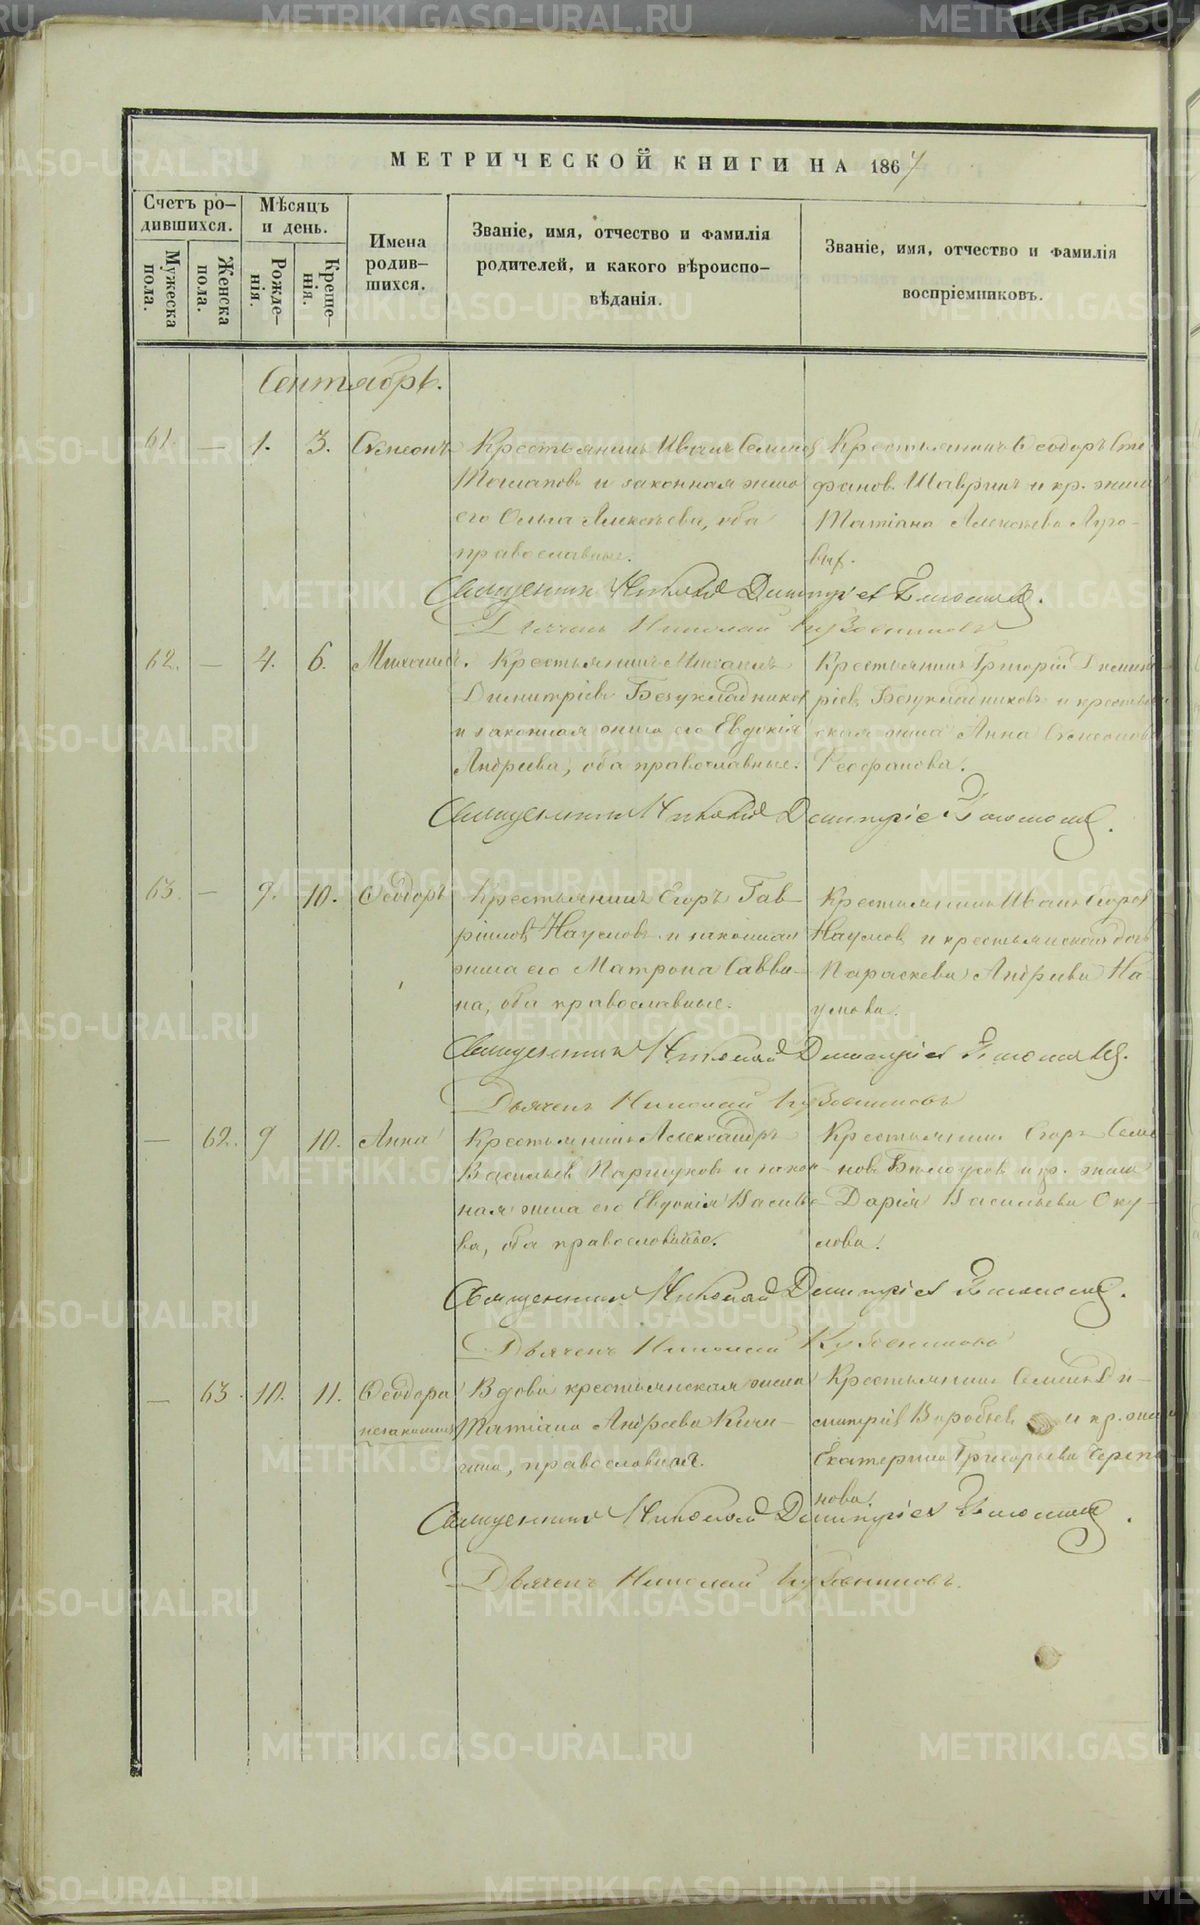 МЕТРИЧЕСКОЙ КНИГИ НА 1867
Счетъ ро-
дившихся.
Мѣсяцъ
и день.
Мужеска
пола.
Женска
пола.
Рожде-
нія.
Креще-
нія.
Имена
родив-
шихся.
Званіе, имя, отчество и фамилія
родителей, и какого вѣроиспо-
вѣданія.
Званіе, имя, отчество и фамилія
воспріемниковъ.
Сентябрь.
61. — 1. 3. Симеонъ Крестьянинъ Иванъ
и законная жена
его Ольга Алексѣева, оба
православные.
Крестьянинъ Ѳеодоръ Сте-
фановъ Шавринъ и кр. жена
Татіана Алексѣева Луго-
выхъ.
Священникъ Николай Димитріевъ
Дьячекъ Николай
62. — 4. 6. Михаилъ. Крестьянинъ Михаилъ
Димитріевъ Безукладниковъ
и законная жена его Евдокія
Андреева, оба православные.
Крестьянинъ Григорій Димит-
ріевъ Безукладниковъ и крестьян-
ская жена Анна Симеонова
Ѳеофанова.
Священникъ Николай Димитріевъ
63. — 9. 10. Ѳеодоръ Крестьянинъ Егоръ Гав-
ріиловъ Наумовъ и законная
жена его Матрона Савви-
на, оба православные.
Крестьянинъ Иванъ Егоровъ
Наумовъ и крестьянская дочь
Параскева Андреева На-
умова.
Священникъ Николай Димитріевъ
Дьячекъ Николай
— 62. 9 10. Анна Крестьянинъ Александръ
Васильевъ Паршуковъ и закон-
ная жена его Евдокія Василье-
ва, оба православные.
Крестьянинъ Егоръ Семе-
новъ Бѣлоусовъ и кр. жена
Дарія Васильева Оку-
лова.
Священникъ Николай Димитріевъ
Дьячекъ Николай
— 63. 10. 11. Ѳеодора Вдова крестьянская жена
незаконная Татіана Андреева Кичи-
гина, православная.
Крестьянинъ Семенъ Ди-
митріевъ Воробьевъ и кр. жена
Екатерина Григорьева Черепа-
нова.
Священникъ Николай Димитріевъ
Дьячекъ Николай
METRIKI.GASO-URAL.RU